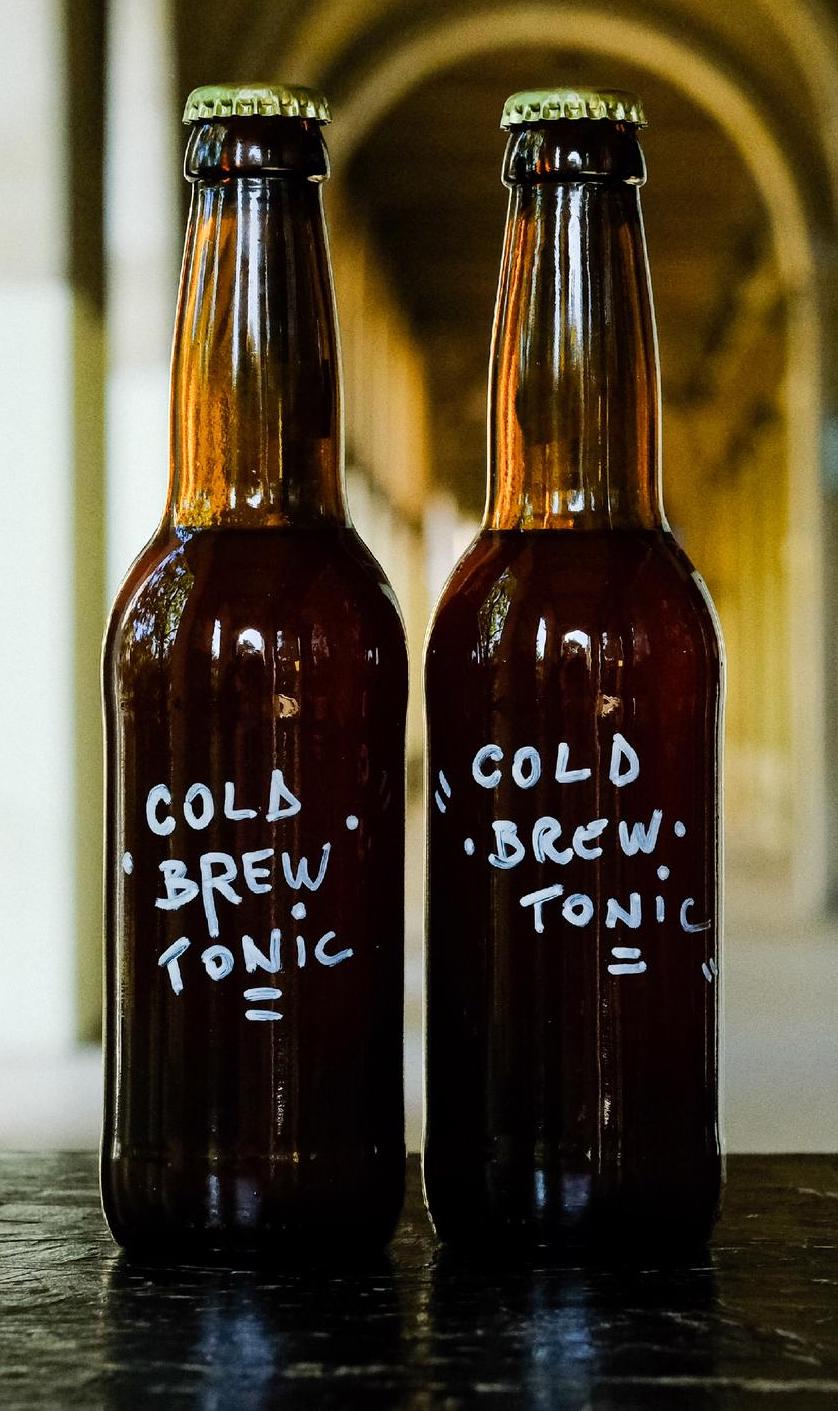 COLD
BREW
TONiC
COLD
BREW
TONiC